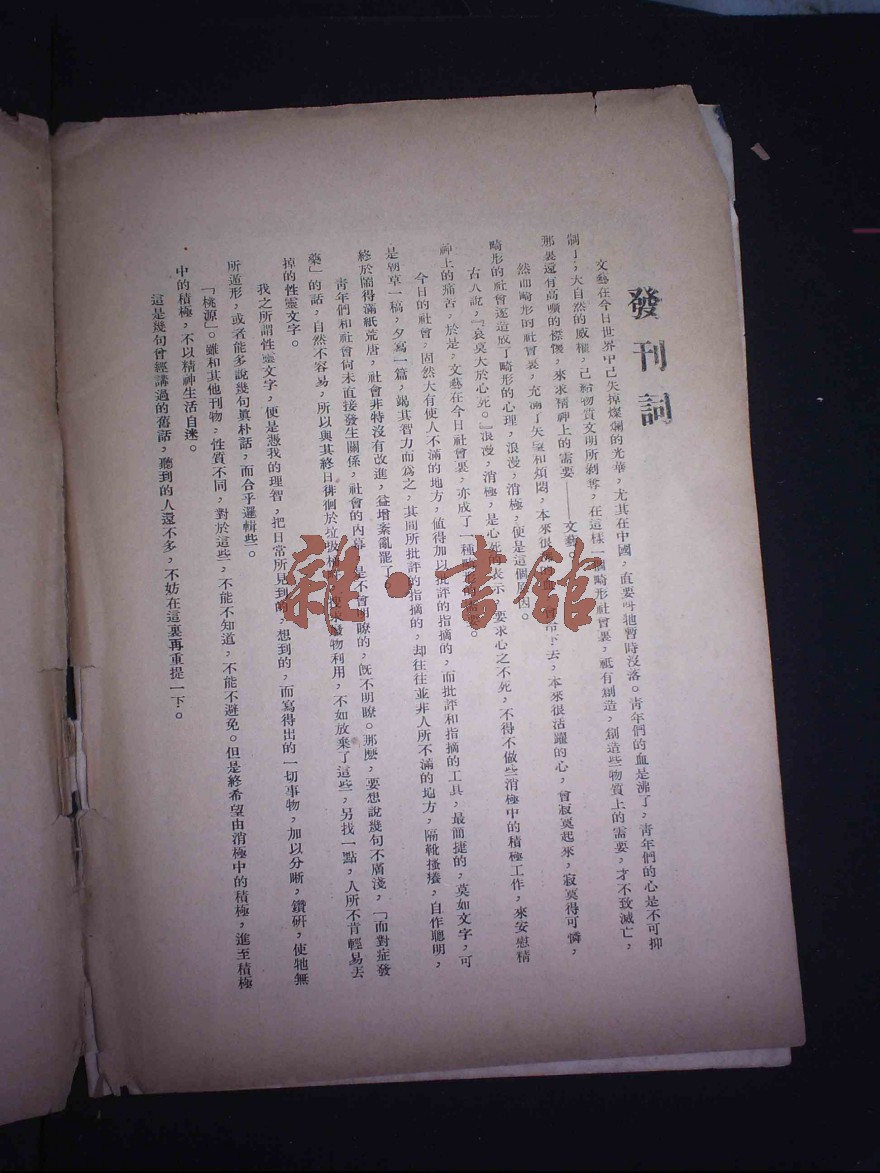 發刊詞
文藝在今日世界中已失掉燦爛的光華,尤其在中國,直要叫牠暫時沒落。青年們的血是沸了,青年們的心是不可抑
制了,大自然的威權,已給物質文明所剝奪,在這樣一個畸形社會裏,祇有創造,創造些物質上的需要,才不致滅亡,
那裏還有高曠的襟懷,來求精神上的需要——文藝。
然而畸形的社會裏,充滿了失望和煩悶,本來很 去,本來很活躍的心,曾寂寞起來,寂寞得可憐,
畸形的社會逐造成了畸形的心理,浪漫,消極,便是這個原因。
古人說,『哀莫大於心死。』浪漫,消極,是心死的表示,要求心之不死,不得不做些消極中的積極工作,來安慰精
神上的痛苦,於是,文藝在今日社會裏,亦成了一種畸形的需要。
今日的社會,固然大有使人不滿的地方,值得加以批評的指摘的,而批評和指摘的工具,最簡捷的,莫如文字,可
是朝草一稿,夕寫一篇,竭其智力而為之,其間所批評的指摘的,却往往並非人所不滿的地方,隔靴搔癢,自作聰明,
終於鬧得滿紙荒唐,社會非特沒有改進,益增紊亂罷了。
青年們和社會尙未直接發生關係,社會的內幕,是不會明瞭的,旣不明瞭。那麼,要想說幾句不膚淺,「而對症發
藥」的話,自然不容易,所以與其終日徘徊於垃圾 物利用,不如放棄了這些,另找一點,人所不肯輕易去
掉的性靈文字。
我之所謂性靈文字,便是憑我的理智,把日常所見到的,想到的,而寫得出的一切事物,加以分晰,鑽研,使牠無
所遁形,或者能多說幾句眞朴話,而合乎邏輯些。
「桃源」。雖和其他刊物,性質不同,對於這些,不能不知道,不能不避免。但是終希望由消極中的積極,進至積極
中的積極,不以精神生活自迷。
這是幾句曾經講過的舊話,聽到的人還不多,不妨在這裏再重提一下。
雜·書館